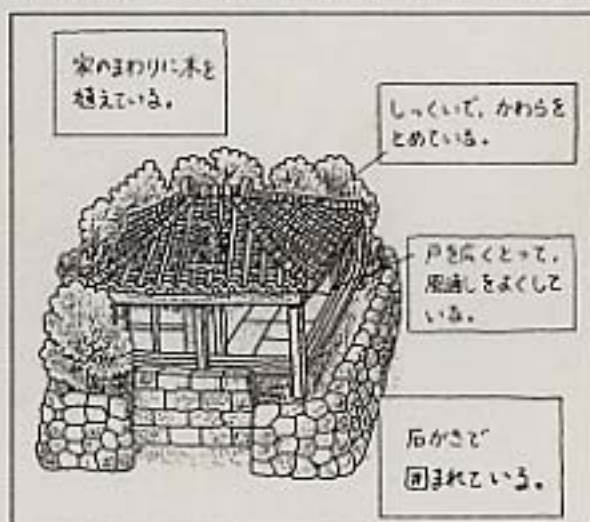 家のまわりに木を
植えている。
しっくいで、かわらを
とめている。
戸を広くとって、
風通しをよくして
いる。
石がきで
囲まれている。